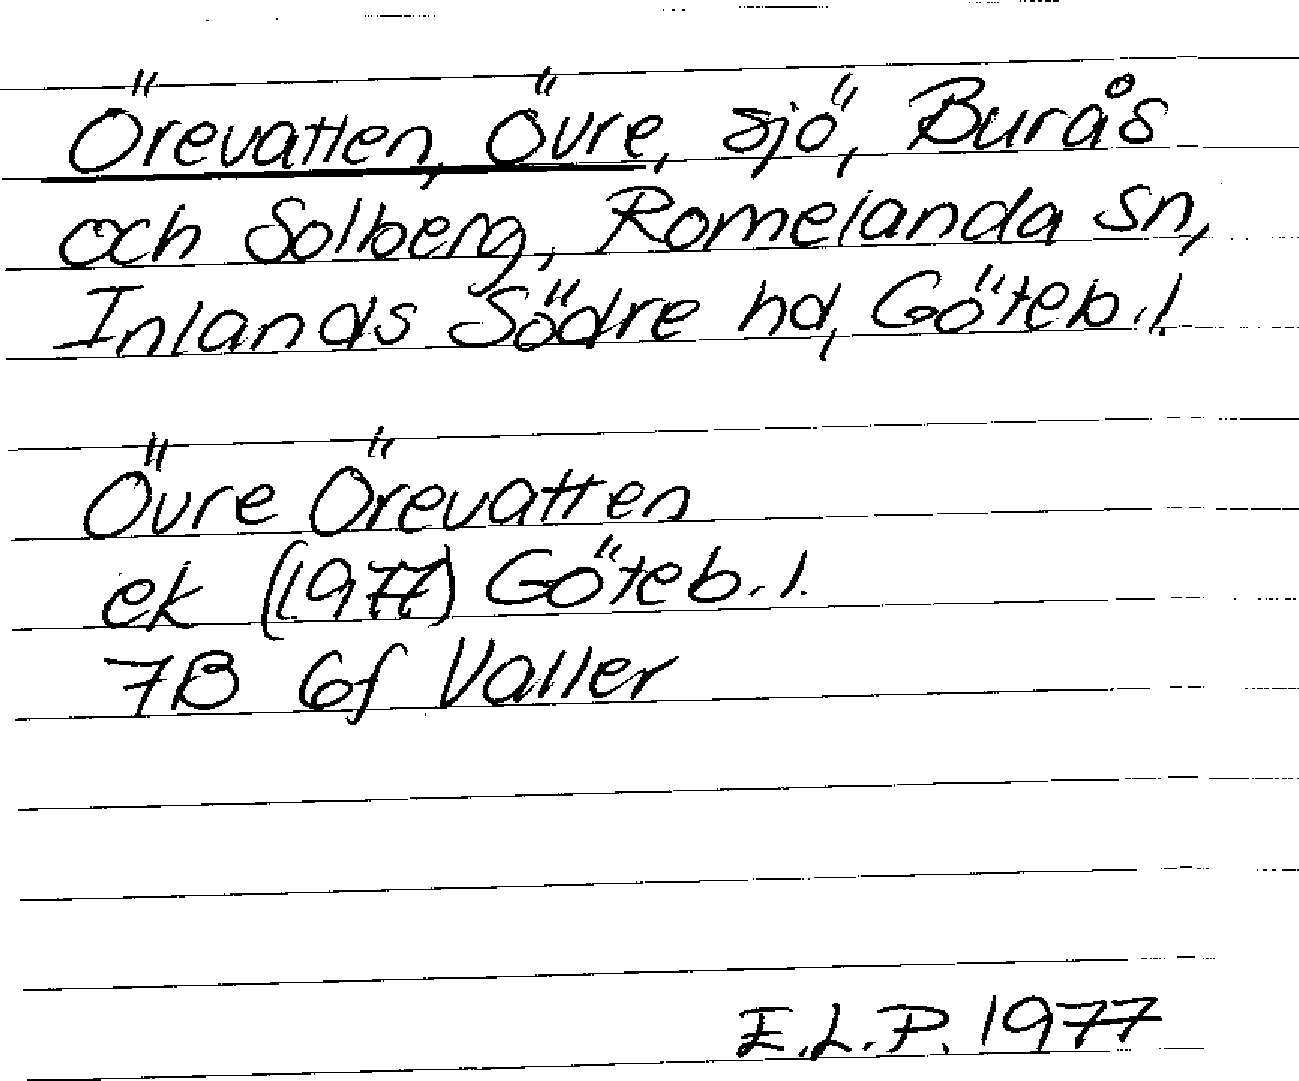 Örevatten, Övre, sjö, Burås
och Solberg, Romelanda sn,
Inlands Södre hd, Göteb.l.
Övre Örevatten
ek (1977) Göteb.l.
7B 6f Valler
E.L.P. 1977